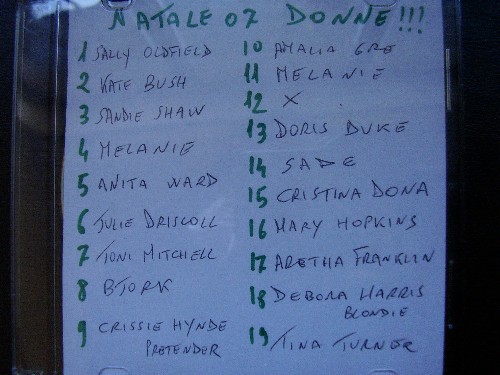 NATALE 07 DONNE!!!
1 SALLY OLDFIELD
2 KATE BUSH
3 SANDIE SHAW
4 MELANIE
5 ANITA WARD
6 JULIE DRISCOLL
7 JONI MITCHELL
8 BJORK
9 CRISSIE HYNDE
PRETENDER
10 AMALIA GRE
11 MELANIE
12 X
13 DORIS DUKE
14 SADE
15 CRISTINA DONA
16 MARY HOPKINS
17 ARETHA FRANKLIN
18 DEBORA HARRIS
BLONDIE
19 TINA TURNER